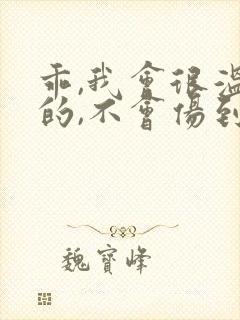 乖,我會很溫
的,不會傷到
魏寶峰